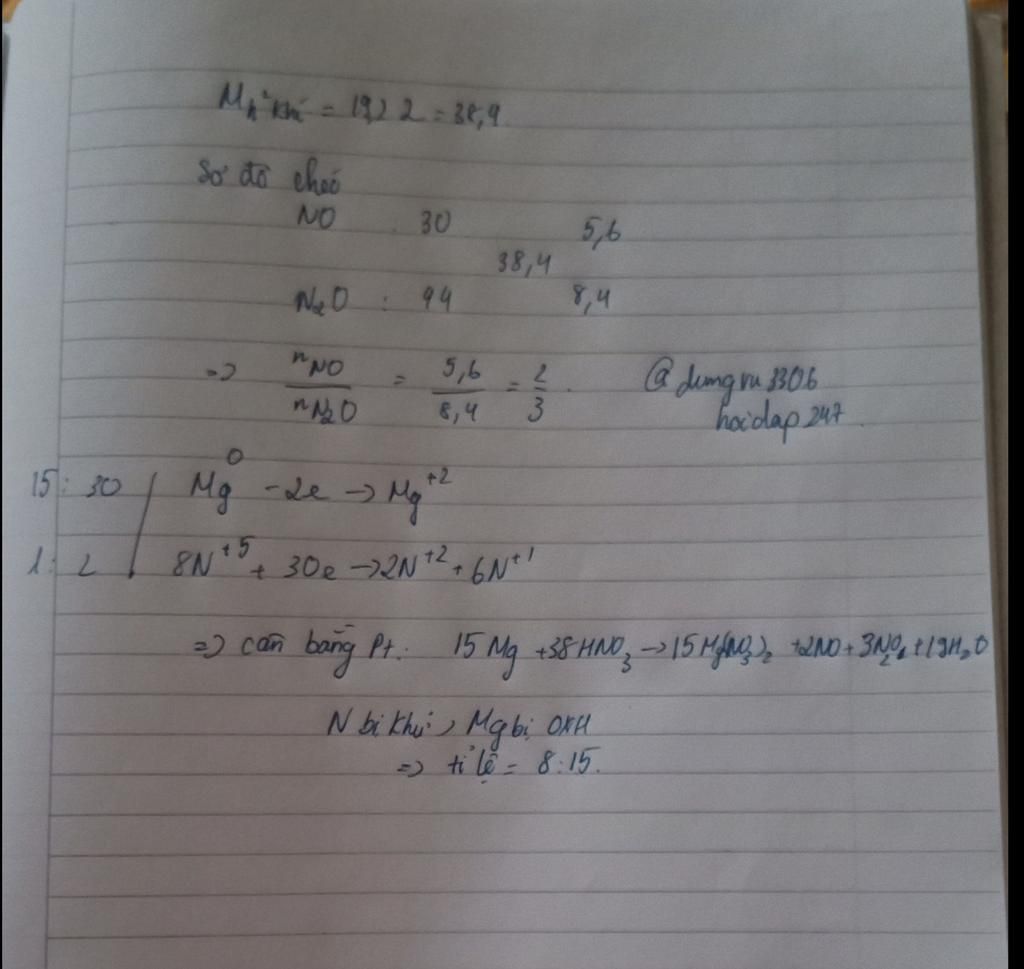 M h² khí = 19,2 2 = 38,4
Sơ đồ chéo
NO . 30 5,6
38,4
N₂O : 44 8,4
=> nNO / nN₂O = 5,6 / 8,4 = 2/3 . @dungvu3306
hoidap247.
15 : 30 | Mg⁰ - 2e -> Mg⁺²
1 : 2 | 8N⁺⁵ + 30e -> 2N⁺² + 6N⁺¹
=> cân bằng Pt: 15Mg + 38HNO₃ -> 15Mg(NO₃)₂ + 2NO + 3N₂O + 19H₂O
N bị khử, Mg bị OXH
=> tỉ lệ = 8:15.